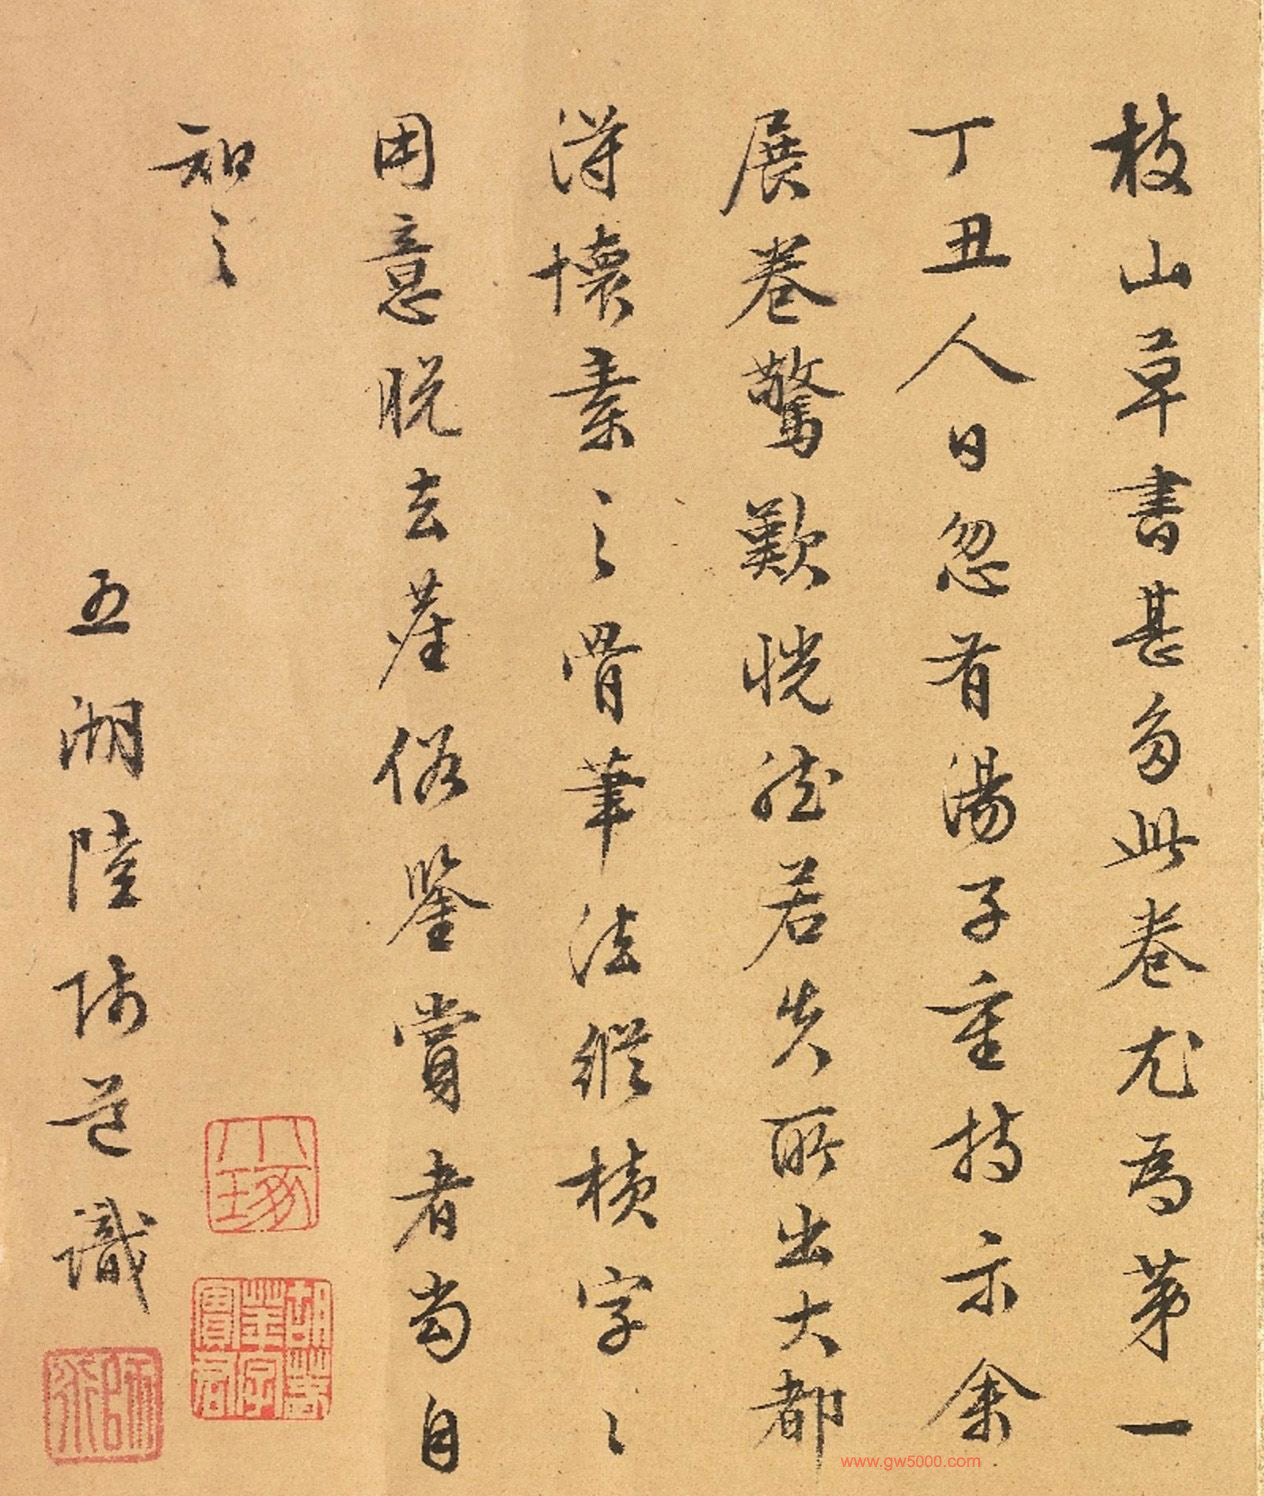 枝山草書甚多此卷尤為第一
丁丑人日忽有湯子重持示余
展卷驚歎恍然若失所出大都
得懷素之骨筆法縱橫字〻
用意脱去塵俗鑒賞者當自
知之
五湖陸師道識
www.gw5000.com